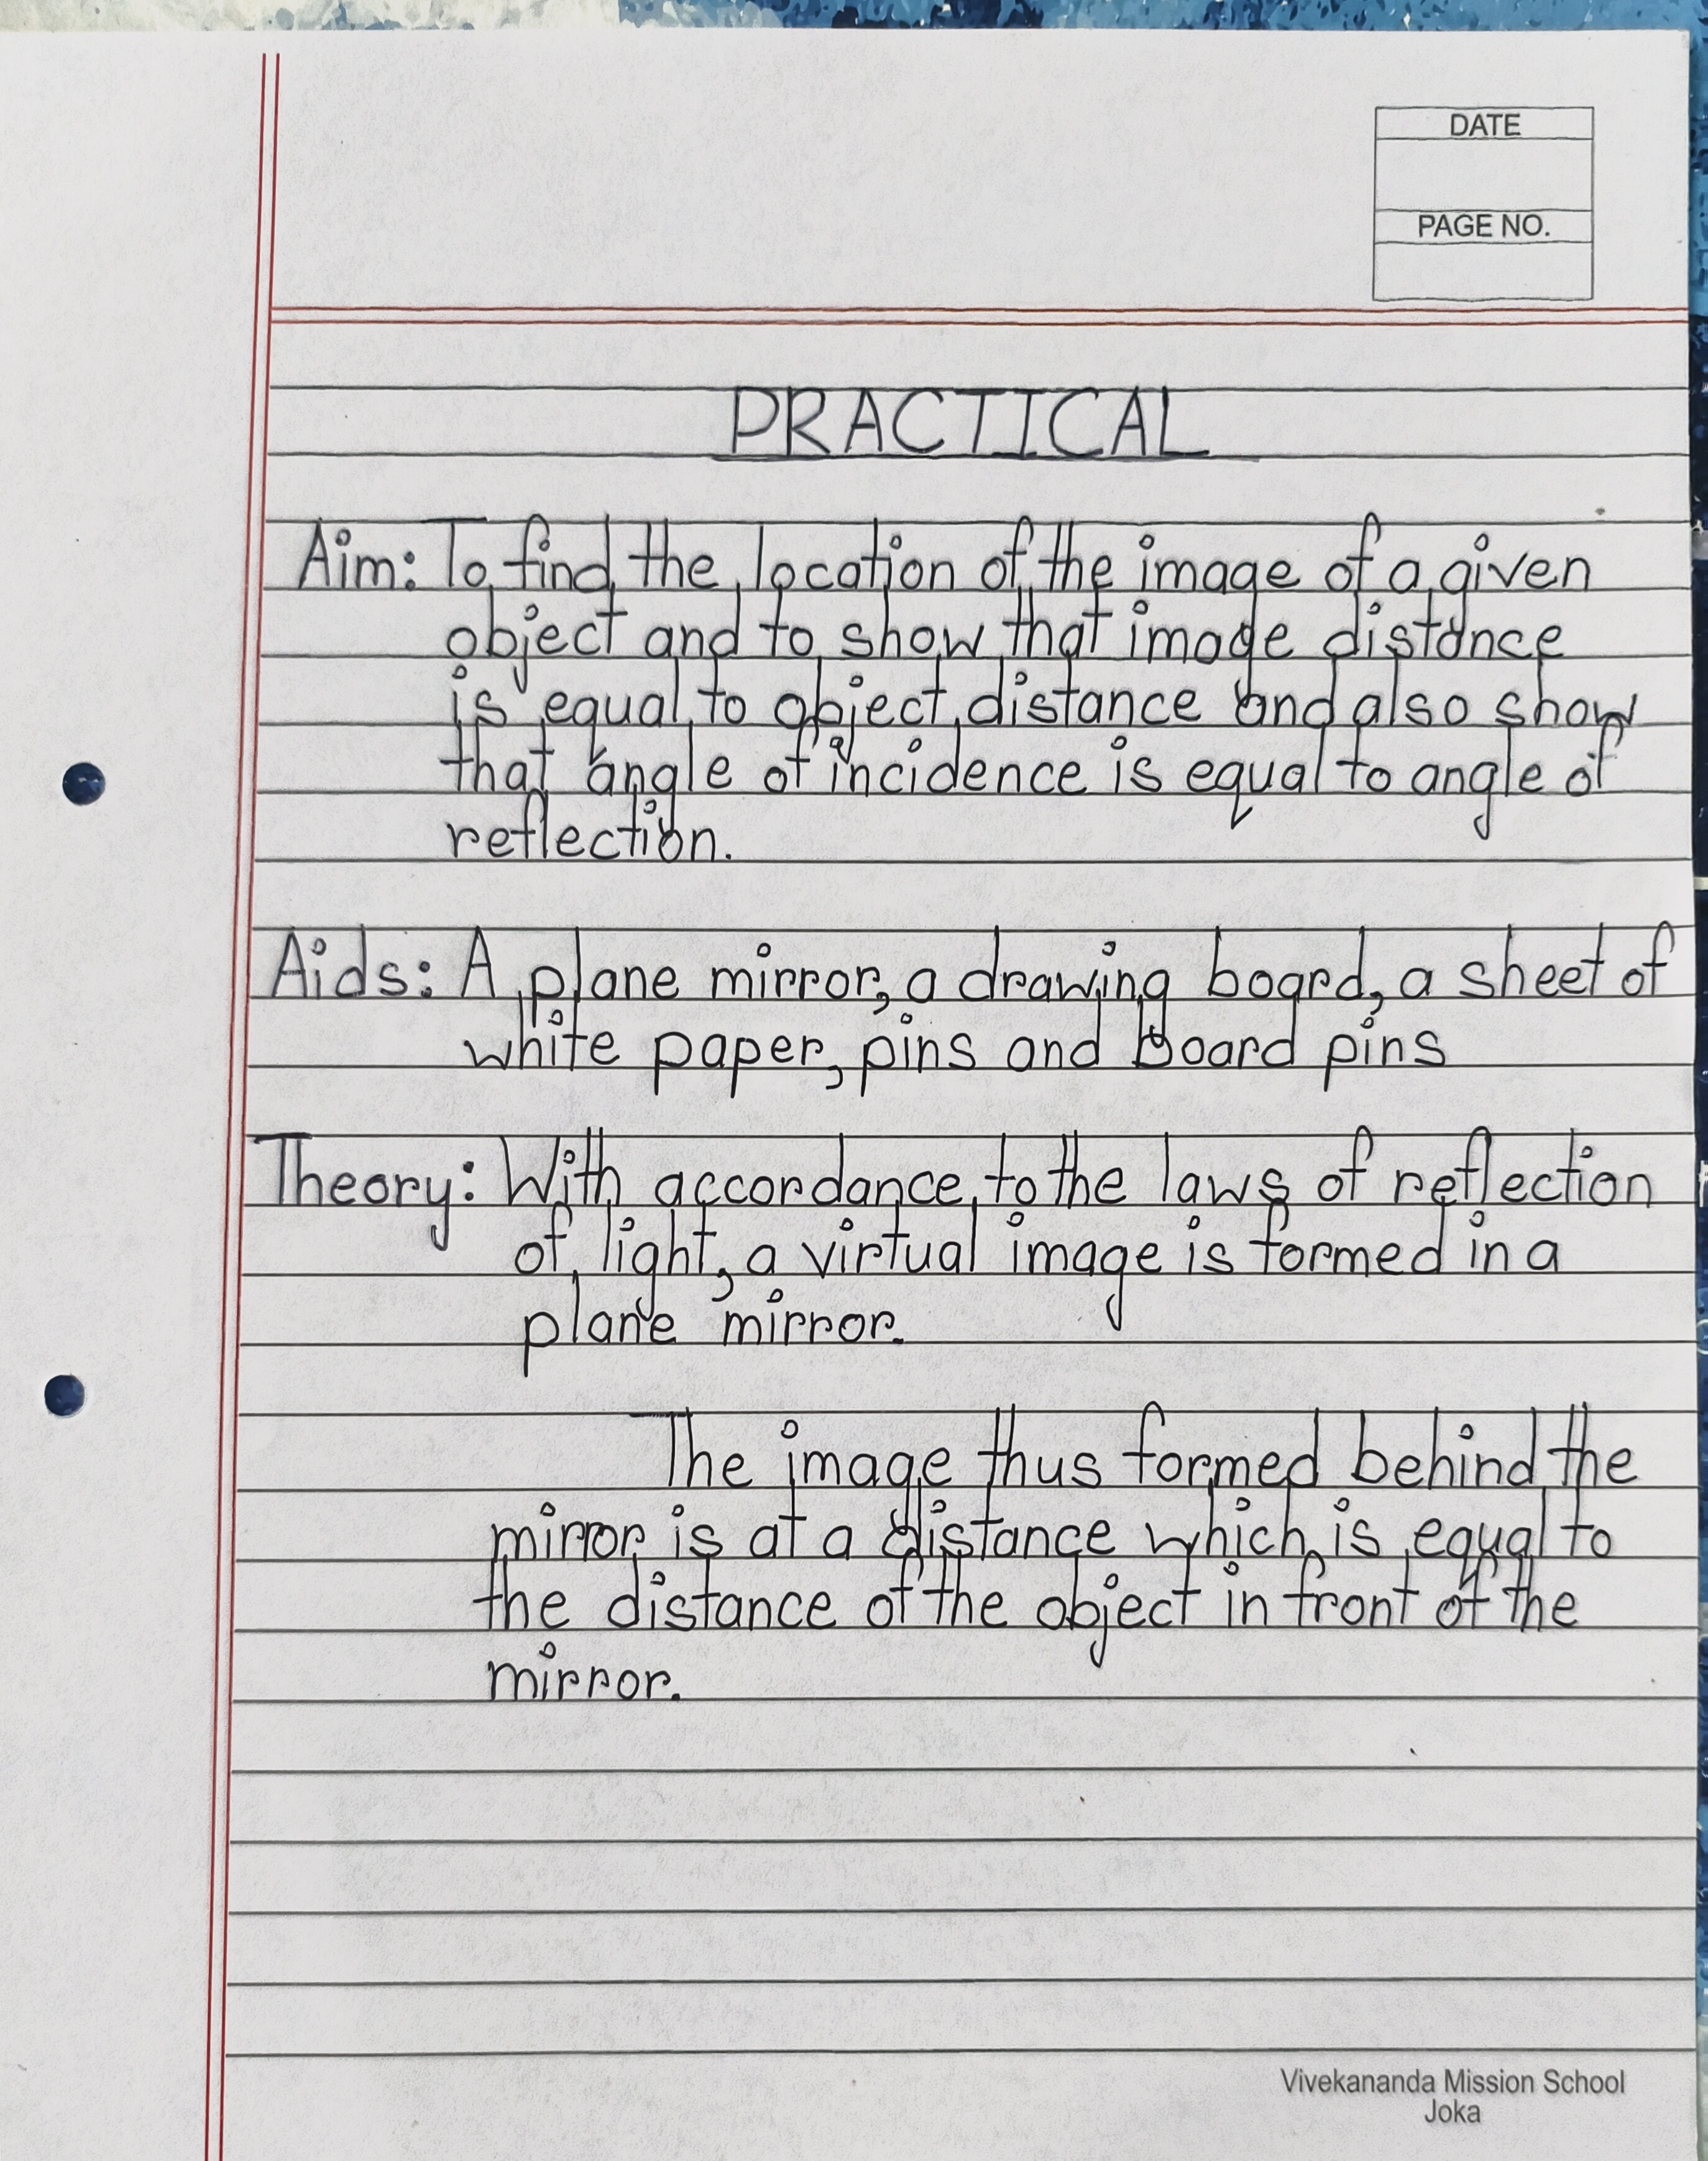 DATE
PAGE NO.
PRACTICAL
Aim: To find the location of the image of a given
object and to show that image distance
is equal to object distance and also show
that angle of incidence is equal to angle of
reflection.
Aids: A plane mirror, a drawing board, a sheet of
white paper, pins and board pins
Theory: With accordance to the laws of reflection
of light, a virtual image is formed in a
plane mirror.
The image thus formed behind the
mirror is at a distance which is equal to
the distance of the object in front of the
mirror.
Vivekananda Mission School
Joka